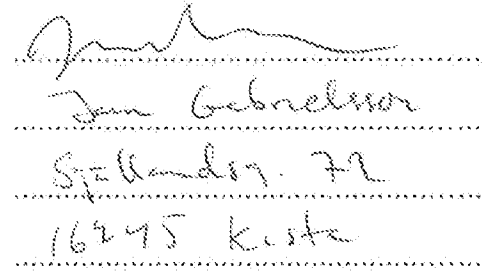 Jan Gabrielsson
Själlandsg. 72
16445 Kista